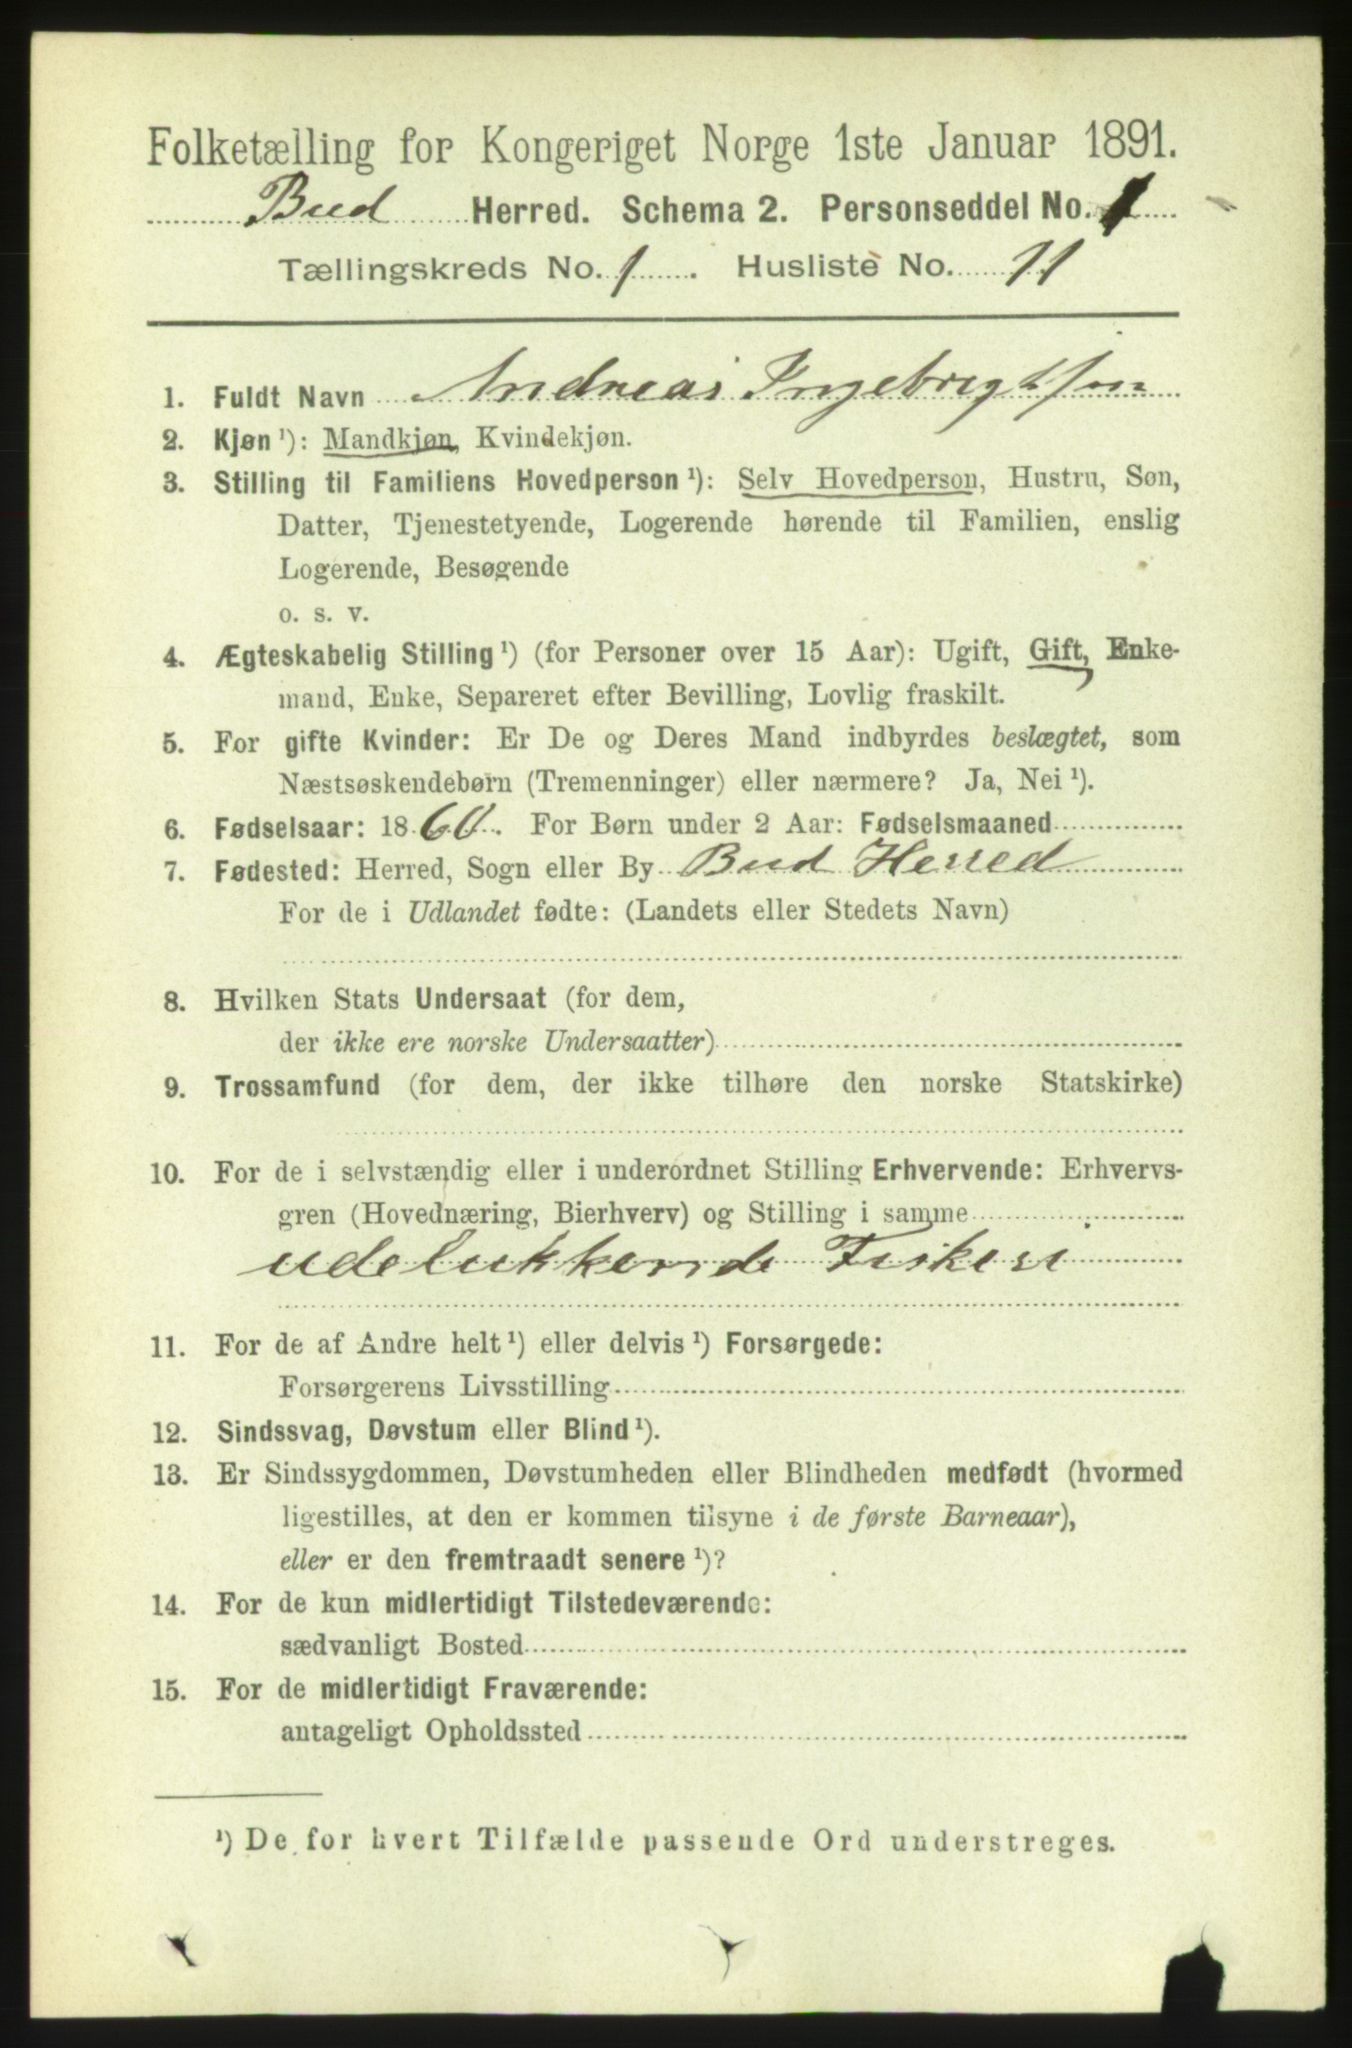 Folketælling for Kongeriget Norge 1ste Januar 1891.
Bud Herred. Schema 2. Personseddel No. 1
Tællingskreds No. 1. Husliste No. 11
1. Fuldt Navn Andreas Ingebrigtsen
2. Kjøn¹): Mandkjøn, Kvindekjøn.
3. Stilling til Familiens Hovedperson¹): Selv Hovedperson, Hustru, Søn,
Datter, Tjenestetyende, Logerende hørende til Familien, enslig
Logerende, Besøgende
o. s. v.
4. Ægteskabelig Stilling¹) (for Personer over 15 Aar): Ugift, Gift, Enke-
mand, Enke, Separeret efter Bevilling, Lovlig fraskilt.
5. For gifte Kvinder: Er De og Deres Mand indbyrdes beslægtet, som
Næstsøskendebørn (Tremenninger) eller nærmere? Ja, Nei¹).
6. Fødselsaar: 1860. For Børn under 2 Aar: Fødselsmaaned
7. Fødested: Herred, Sogn eller By Bud Herred
For de i Udlandet fødte: (Landets eller Stedets Navn)
8. Hvilken Stats Undersaat (for dem,
der ikke ere norske Undersaatter)
9. Trossamfund (for dem, der ikke tilhøre den norske Statskirke)
10. For de i selvstændig eller i underordnet Stilling Erhvervende: Erhvervs-
gren (Hovednæring, Bierhverv) og Stilling i samme
udelukkende Fiskeri
11. For de af Andre helt¹) eller delvis¹) Forsørgede:
Forsørgerens Livsstilling
12. Sindssvag, Døvstum eller Blind¹).
13. Er Sindssygdommen, Døvstumheden eller Blindheden medfødt (hvormed
ligestilles, at den er kommen tilsyne i de første Barneaar),
eller er den fremtraadt senere¹)?
14. For de kun midlertidigt Tilstedeværende:
sædvanligt Bosted
15. For de midlertidigt Fraværende:
antageligt Opholdssted
¹) De for hvert Tilfælde passende Ord understreges.